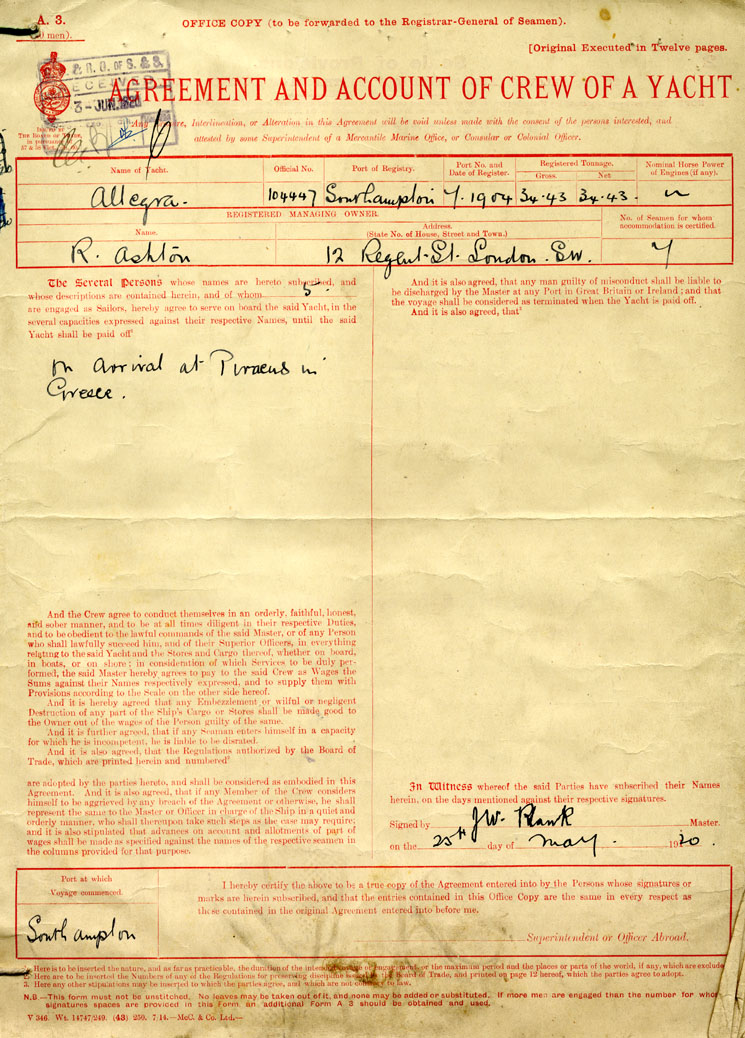 A. 3.
OFFICE COPY (to be forwarded to the Registrar-General of Seamen).
men).
[Original Executed in Twelve pages.
R. O. OF S. & S.
3-JUN.1920
AGREEMENT AND ACCOUNT OF CREW OF A YACHT
Interlineation, or Alteration in this Agreement will be void unless made with the consent of the persons interested, and
attested by some Superintendent of a Mercantile Marine Office, or Consular or Colonial Officer.
ISSUED BY
THE BOARD OF TRADE,
in pursuance of
57 & 58
Name of Yacht.
Official No.
Port of Registry.
Port No. and
Date of Register.
Registered Tonnage.
Gross.
Net
Nominal Horse Power
of Engines (if any).
Allegra.
104447
Southampton
7. 1904
34.43
34.43.
REGISTERED MANAGING OWNER.
Name.
Address.
(State No. of House, Street and Town.)
No. of Seamen for whom
accommodation is certified
R. Ashton
12 Regent St. London. SW.
7
The Several Persons whose names are hereto subscribed, and
whose descriptions are contained herein, and of whom 5
are engaged as Sailors, hereby agree to serve on board the said Yacht, in the
several capacities expressed against their respective Names, until the said
Yacht shall be paid off¹
on arrival at Piraeus in
Greece.
And the Crew agree to conduct themselves in an orderly, faithful, honest,
and sober manner, and to be at all times diligent in their respective Duties,
and to be obedient to the lawful commands of the said Master, or of any Person
who shall lawfully succeed him, and of their Superior Officers, in everything
relating to the said Yacht and the Stores and Cargo thereof, whether on board,
in boats, or on shore: in consideration of which Services to be duly per-
formed, the said Master hereby agrees to pay to the said Crew as Wages the
Sums against their Names respectively expressed, and to supply them with
Provisions according to the Scale on the other side hereof.
And it is hereby agreed that any Embezzlement or wilful or negligent
Destruction of any part of the Ship's Cargo or Stores shall be made good to
the Owner out of the wages of the Person guilty of the same.
And it is further agreed, that if any Seaman enters himself in a capacity
for which he is incompetent, he is liable to be disrated.
And it is also agreed, that the Regulations authorized by the Board of
Trade, which are printed herein and numbered²
are adopted by the parties hereto, and shall be considered as embodied in this
Agreement. And it is also agreed, that if any Member of the Crew considers
himself to be aggrieved by any breach of the Agreement or otherwise, he shall
represent the same to the Master or Officer in charge of the Ship in a quiet and
orderly manner, who shall thereupon take such steps as the case may require:
and it is also stipulated that advances on account and allotments of part of
wages shall be made as specified against the names of the respective seamen in
the columns provided for that purpose.
And it is also agreed, that any man guilty of misconduct shall be liable to
be discharged by the Master at any Port in Great Britain or Ireland; and that
the voyage shall be considered as terminated when the Yacht is paid off.
And it is also agreed, that³
In Witness whereof the said Parties have subscribed their Names
herein, on the days mentioned against their respective signatures.
Signed by J W. Plank Master.
on the 25th day of May. 1920.
Port at which
Voyage commenced.
Southampton
I hereby certify the above to be a true copy of the Agreement entered into by the Persons whose signatures or
marks are herein subscribed, and that the entries contained in this Office Copy are the same in every respect as
those contained in the original Agreement entered into before me.
Superintendent or Officer Abroad.
Here is to be inserted the nature, and as far as practicable, the duration of the intended voyage or engagement, or the maximum period and the places or parts of the world, if any, which are exclude
2. Here are to be inserted the Numbers of any of the Regulations for preserving discipline issued by the Board of Trade, and printed on page 12 hereof, which the parties agree to adopt.
3. Here any other stipulations may be inserted to which the parties agree, and which are not contrary to law.
N.B.—This form must not be unstitched. No leaves may be taken out of it, and none may be added or substituted. If more men are engaged than the number for whom
signatures spaces are provided in this Form an additional Form A 3 should be obtained and used.
V 346. Wt. 14747/249. (43) 250. 7/14.—McC. & Co. Ltd.—